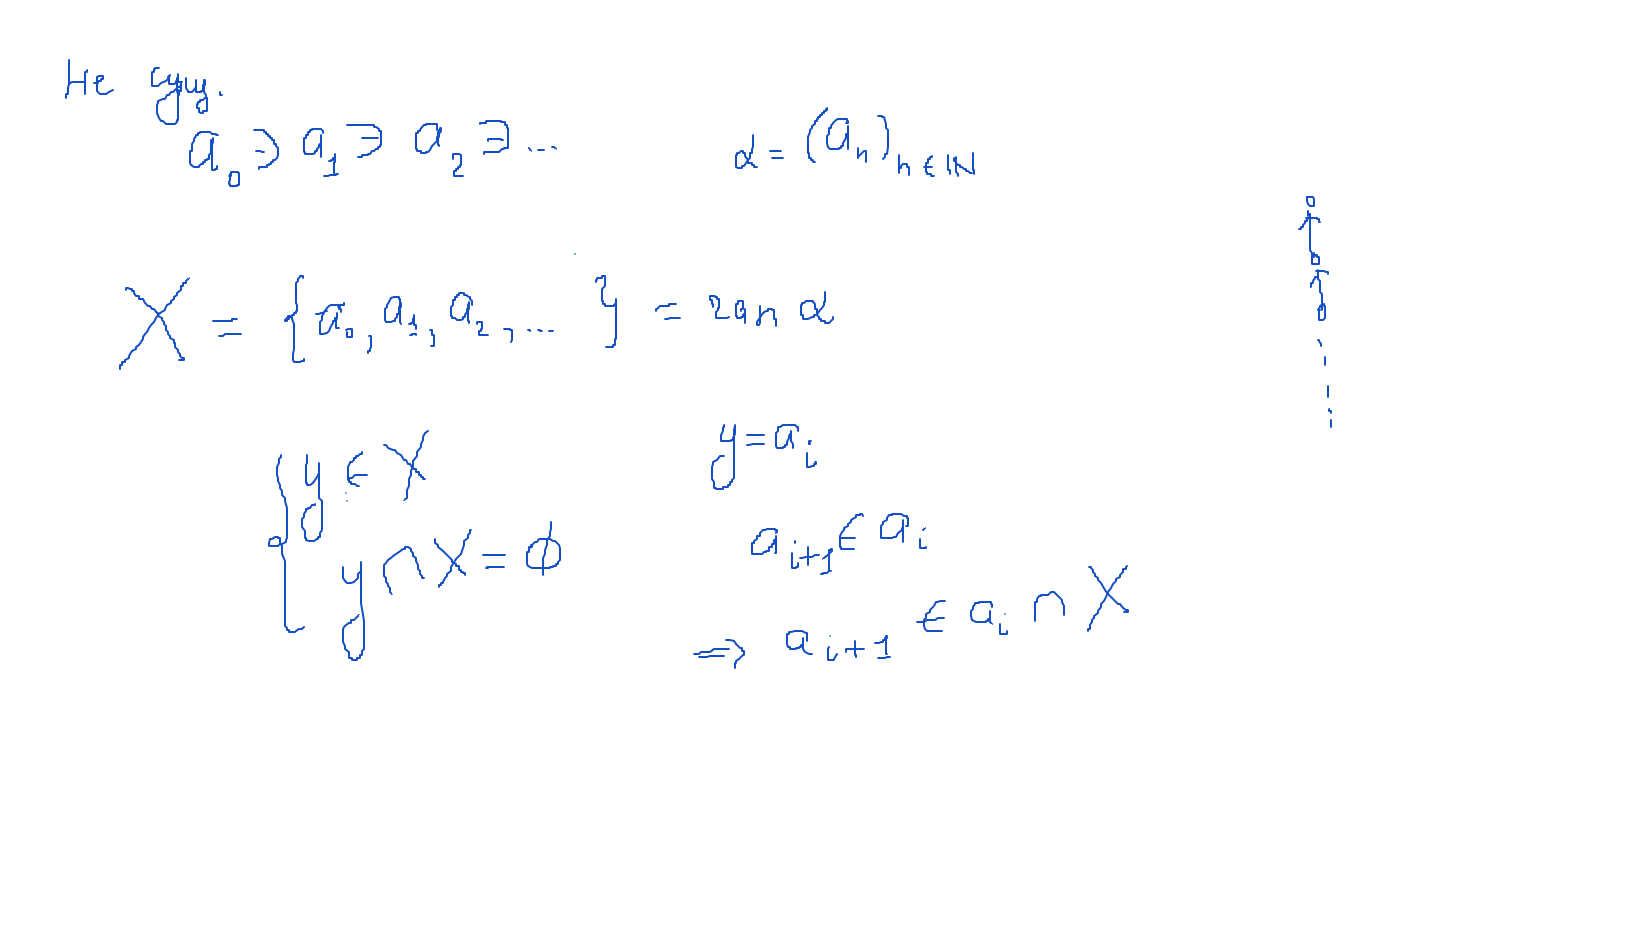 Не сущ.
a₀ ∋ a₁ ∋ a₂ ∋ ... α = (aₙ)ₙ∈ℕ
X = {a₀, a₁, a₂, ...} = ran α
{ y ∈ X y = aᵢ
y ∩ X = ∅ aᵢ₊₁ ∈ aᵢ
⇒ aᵢ₊₁ ∈ aᵢ ∩ X